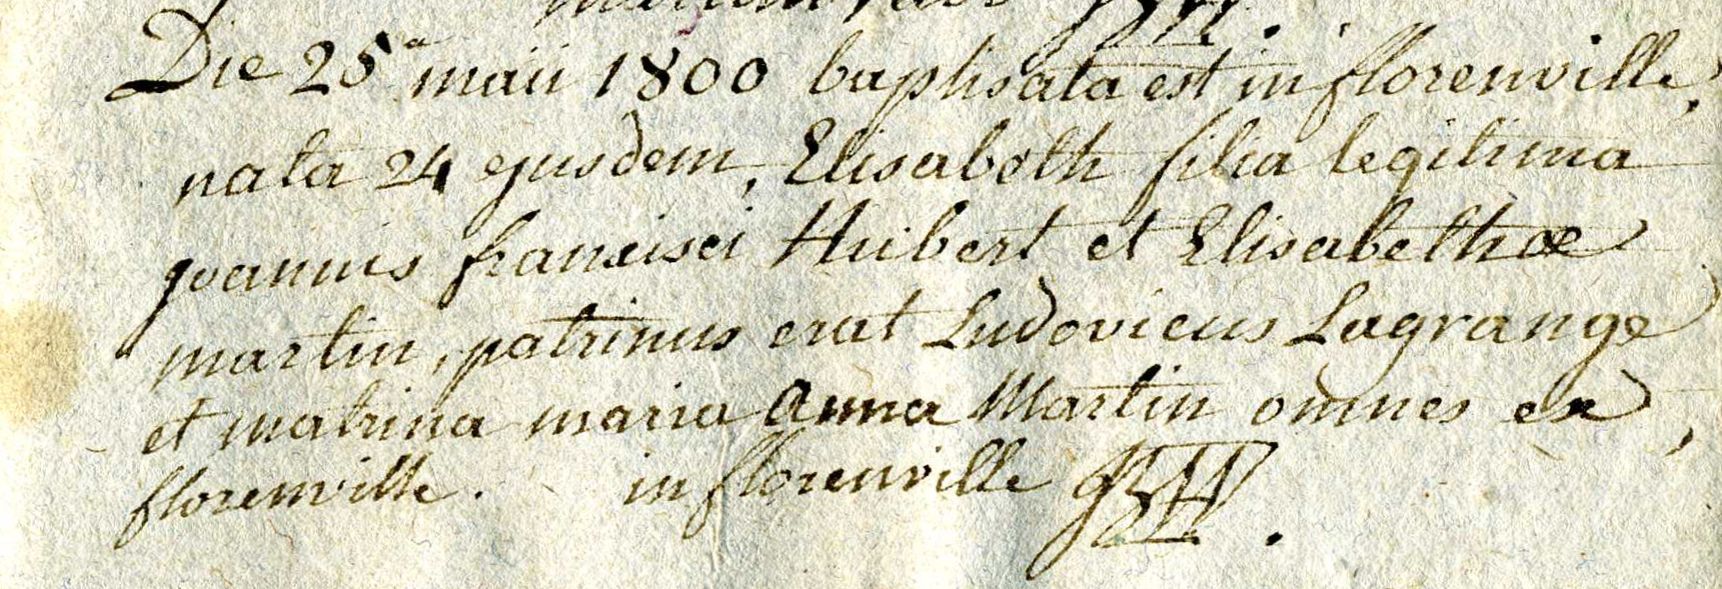 Die 25a maii 1800 baptisata est in florenville,
nata 24 ejusdem, Elisabeth filia legitima
joannis francisci Hubert et Elisabethae
martin, patrinus erat Ludovicus Lagrange
et matrina maria anna Martin omnes ex
florenville. in florenville